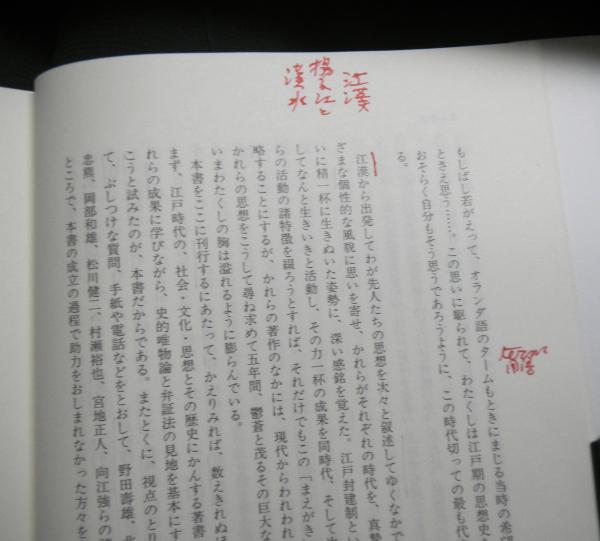 江漢
揚子江と
漢水
用語
もしばし若がえって、オランダ語のタームもときにまじる当時の希望
とさえ思う……。この思いに駆られて、わたくしは江戸期の思想史
おそらく自分もそう思うであろうように、この時代切っての最も代
る。
江漢から出発してわが先人たちの思想を次々と叙述してゆくなかで
ざまな個性的な風貌に思いを寄せ、かれらがそれぞれの時代を、真摯
いに精一杯に生きぬいた姿勢に、深い感銘を覚えた。江戸封建制とい
してなんと生きいきと活動し、その力一杯の成果を同時代、そして
らの活動の諸特徴を綴ろうとすれば、それだけでもこの「まえがき
略することにするが、かれらの著作のなかには、現代からわれわれ
かれらの思想をこうして尋ね求めて五年間、鬱蒼と茂るその巨大な
いまわたくしの胸は溢れるように膨らんでいる。
本書をここに刊行するにあたって、かえりみれば、数えきれぬほ
まず、江戸時代の、社会・文化・思想とその歴史にかんする著書
れらの成果に学びながら、史的唯物論と弁証法の見地を基本にす
こうと試みたのが、本書だからである。またとくに、視点のとり
て、ぶしつけな質問、手紙や電話などをとおして、野田壽雄、
忠熊、岡部和雄、松川健二、村瀬裕也、宮地正人、向江強らの
ところで、本書の成立の過程で助力をおしまれなかった方々を